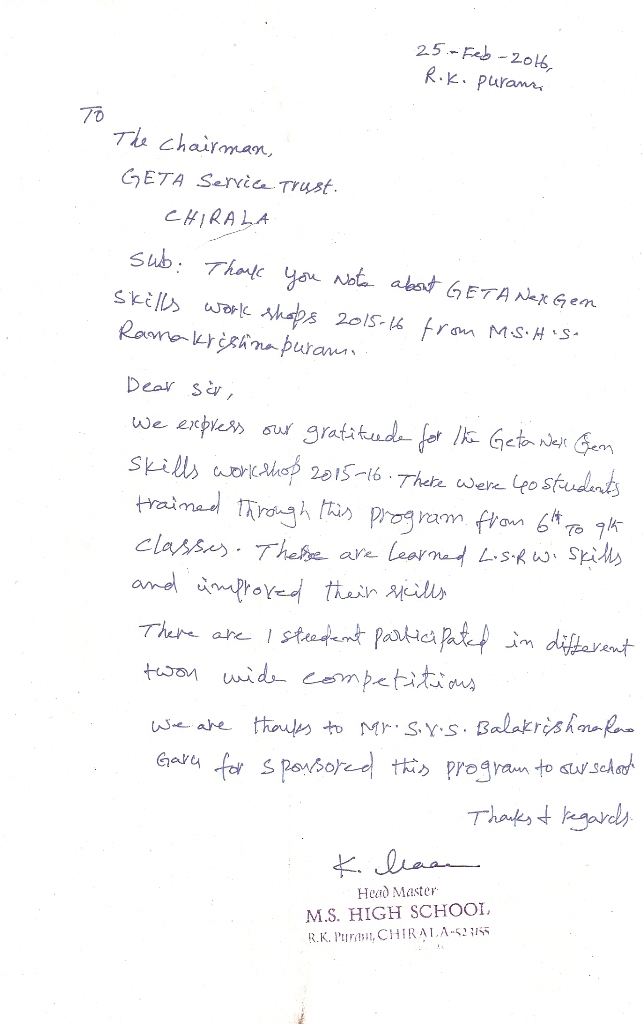 25-Feb-2016,
R.K. Puram.
To
The Chairman,
GETA Service Trust.
CHIRALA
Sub: Thank you Note about GETA Nex Gen
Skills work shops 2015-16 from M.S.H.S.
Ramakrishnapuram.
Dear Sir,
We express our gratitude for the Geta Nex Gen
Skills workshop 2015-16. There were 40 students
trained through this program from 6th To 9th
classes. These are learned L.S.R.W. Skills
and improved their skills
There are 1 student participated in different
twon wide competitions
We are thanks to Mr. S.V.S. Balakrishna Rao
Garu for sponsored this program to our school
Thanks & regards
K.
Head Master
M.S. HIGH SCHOOL,
R.K. Puram, CHIRALA-523155